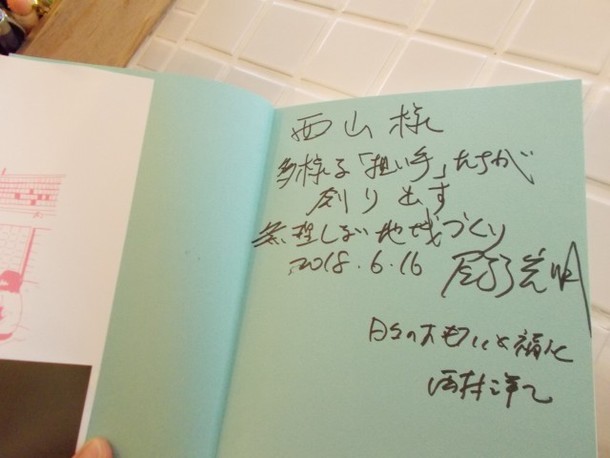 西山様
多様な「担い手」たちが
創り出す
無理しない地域づくり
2018.6.16
日々のおもいを福に
西村洋己